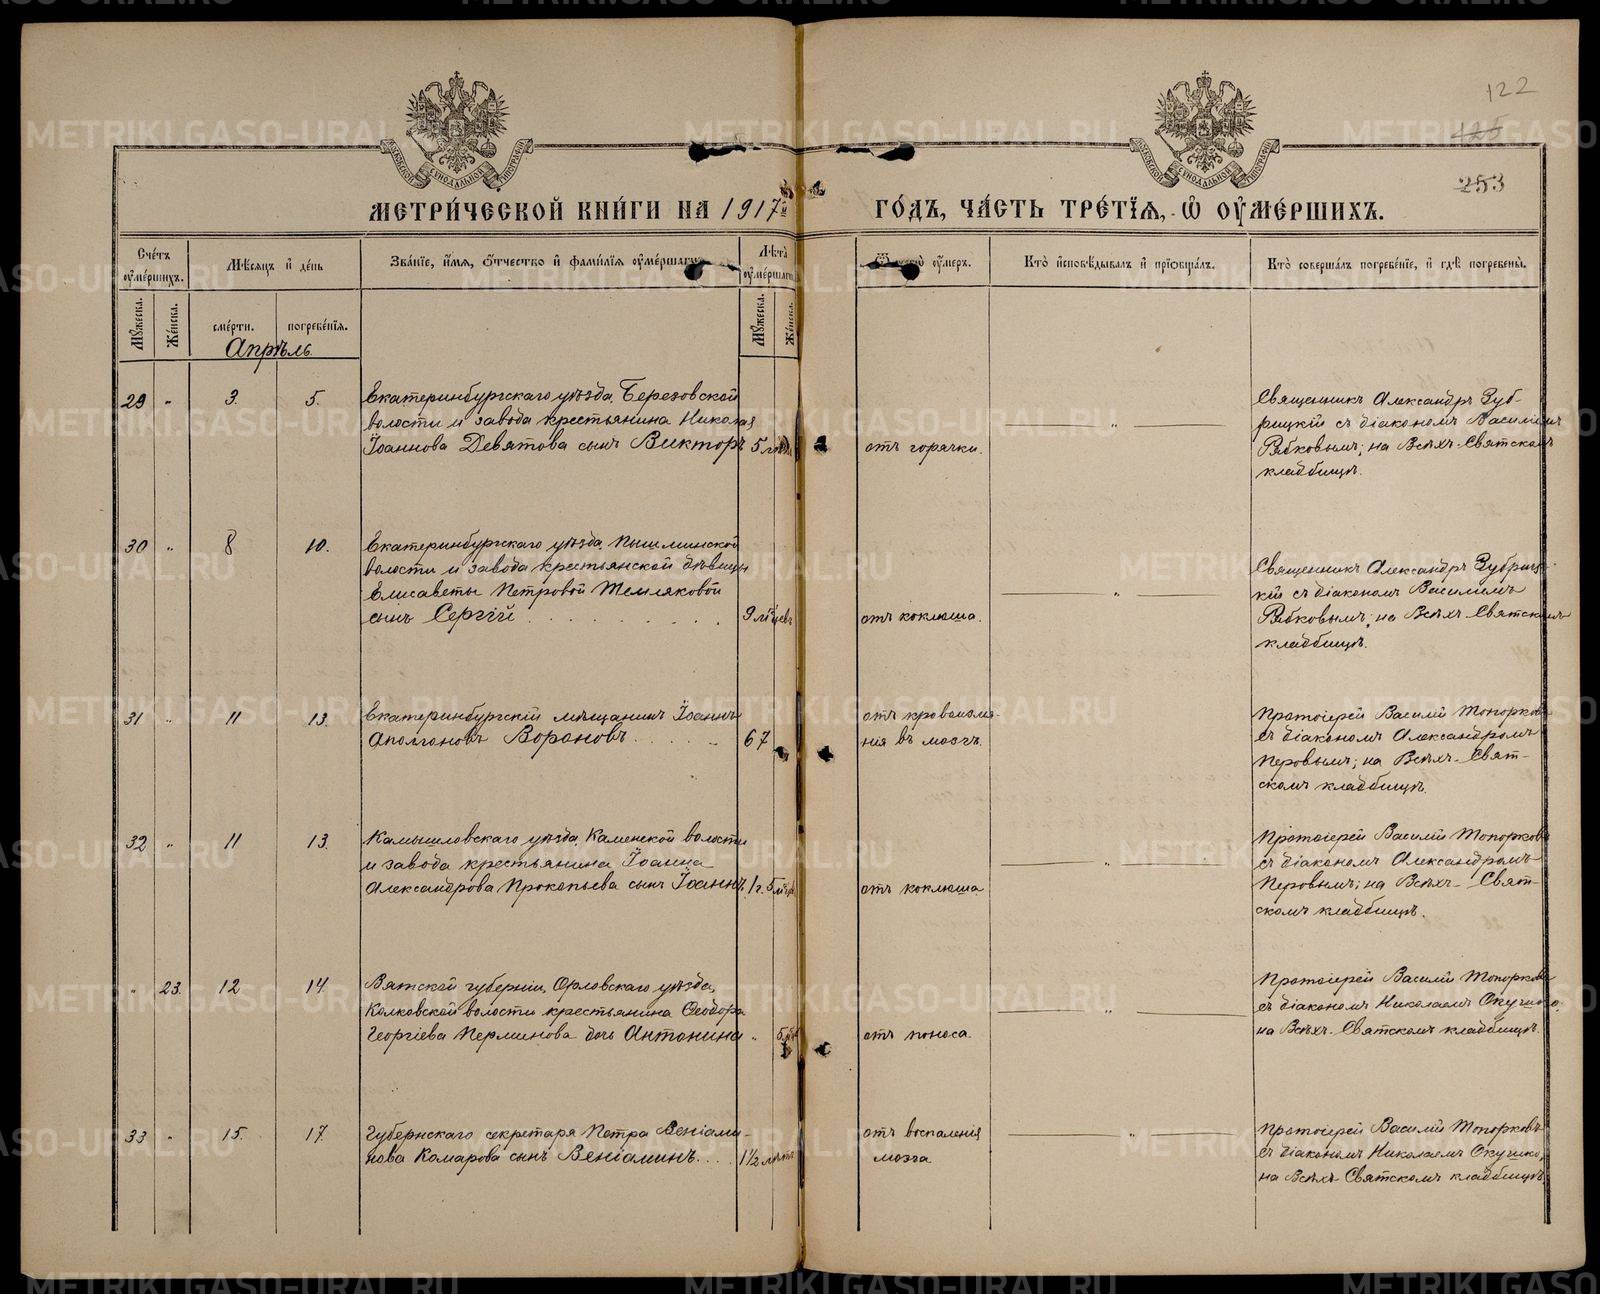 122
125
253
МЕТРИ́ЧЕСКОЙ КНИ́ГИ НА 1917й
ГО́ДЪ, ЧА́СТЬ ТРЕ́ТЇѦ, Ѡ ОУМЕ́РШИХЪ.
Сче́тъ оумéршихъ.
Мѣсяцъ и де́нь
Зва́нїе, и́мя, ѻ́тчество и фами́лїя оумéршагѡ
Лѣта̀ оумéршагѡ
оумеръ.
Кто̀ исповѣ́дывалъ и прїѡбща́лъ.
Кто̀ соверша́лъ погребе́нїе, и гдѣ̀ погребены̀.
Мꙋ́жеска.
Же́нска.
сме́рти.
погребе́нїя.
Мꙋ́жеска.
Же́нска.
Апрѣль.
29
"
3.
5.
Екатеринбургскаго уѣзда, Березовской
волости и завода крестьянина Николая
Іоаннова Девятова сынъ Викторъ
5
отъ горячки.
"
Священникъ Александръ Зуб-
рицкій съ діакономъ Василіемъ
Рябковымъ; на Всѣхъ-Святскомъ
кладбищѣ.
30
"
8
10.
Екатеринбургскаго уѣзда, Пышминской
волости и завода крестьянской дѣвицы
Елисаветы Петровой Темляковой
сынъ Сергій
9 мѣсцевъ
отъ коклюша.
"
Священникъ Александръ Зубриц-
кій съ діакономъ Василіемъ
Рябковымъ, на Всѣхъ-Святскомъ
кладбищѣ.
31
"
11
13.
Екатеринбургскій мѣщанинъ Іоаннъ
Вороновъ
67
отъ кровоизлія-
нія въ мозгъ.
Протоіерей Василій Топорковъ
съ діакономъ Александромъ
Перовымъ; на Всѣхъ-Свят-
скомъ кладбищѣ.
32
"
11
13.
Камышловскаго уѣзда, Каменской волости
и завода крестьянина Іоанна
Александрова Прокопьева сынъ Іоаннъ
1 г. 5 мѣс
отъ коклюша
"
Протоіерей Василій Топорковъ
съ діакономъ Александромъ
Перовымъ; на Всѣхъ-Свят-
скомъ кладбищѣ.
"
23.
12
14
Вятской губерніи, Орловскаго уѣзда,
Колковской волости крестьянина Ѳеодора
Георгіева Перминова дочь Антонина
"
5
отъ поноса.
"
Протоіерей Василій Топорковъ
съ діакономъ Николаемъ
на Всѣхъ-Святскомъ кладбищѣ.
33
"
15.
17.
Губернскаго секретаря Петра Веніами-
нова Комарова сынъ Веніаминъ
1½ лѣтъ
отъ воспаленія
мозга
"
Протоіерей Василій Топорковъ
съ діакономъ Николаемъ
на Всѣхъ-Святскомъ кладбищѣ.
METRIKI.GASO-URAL.RU